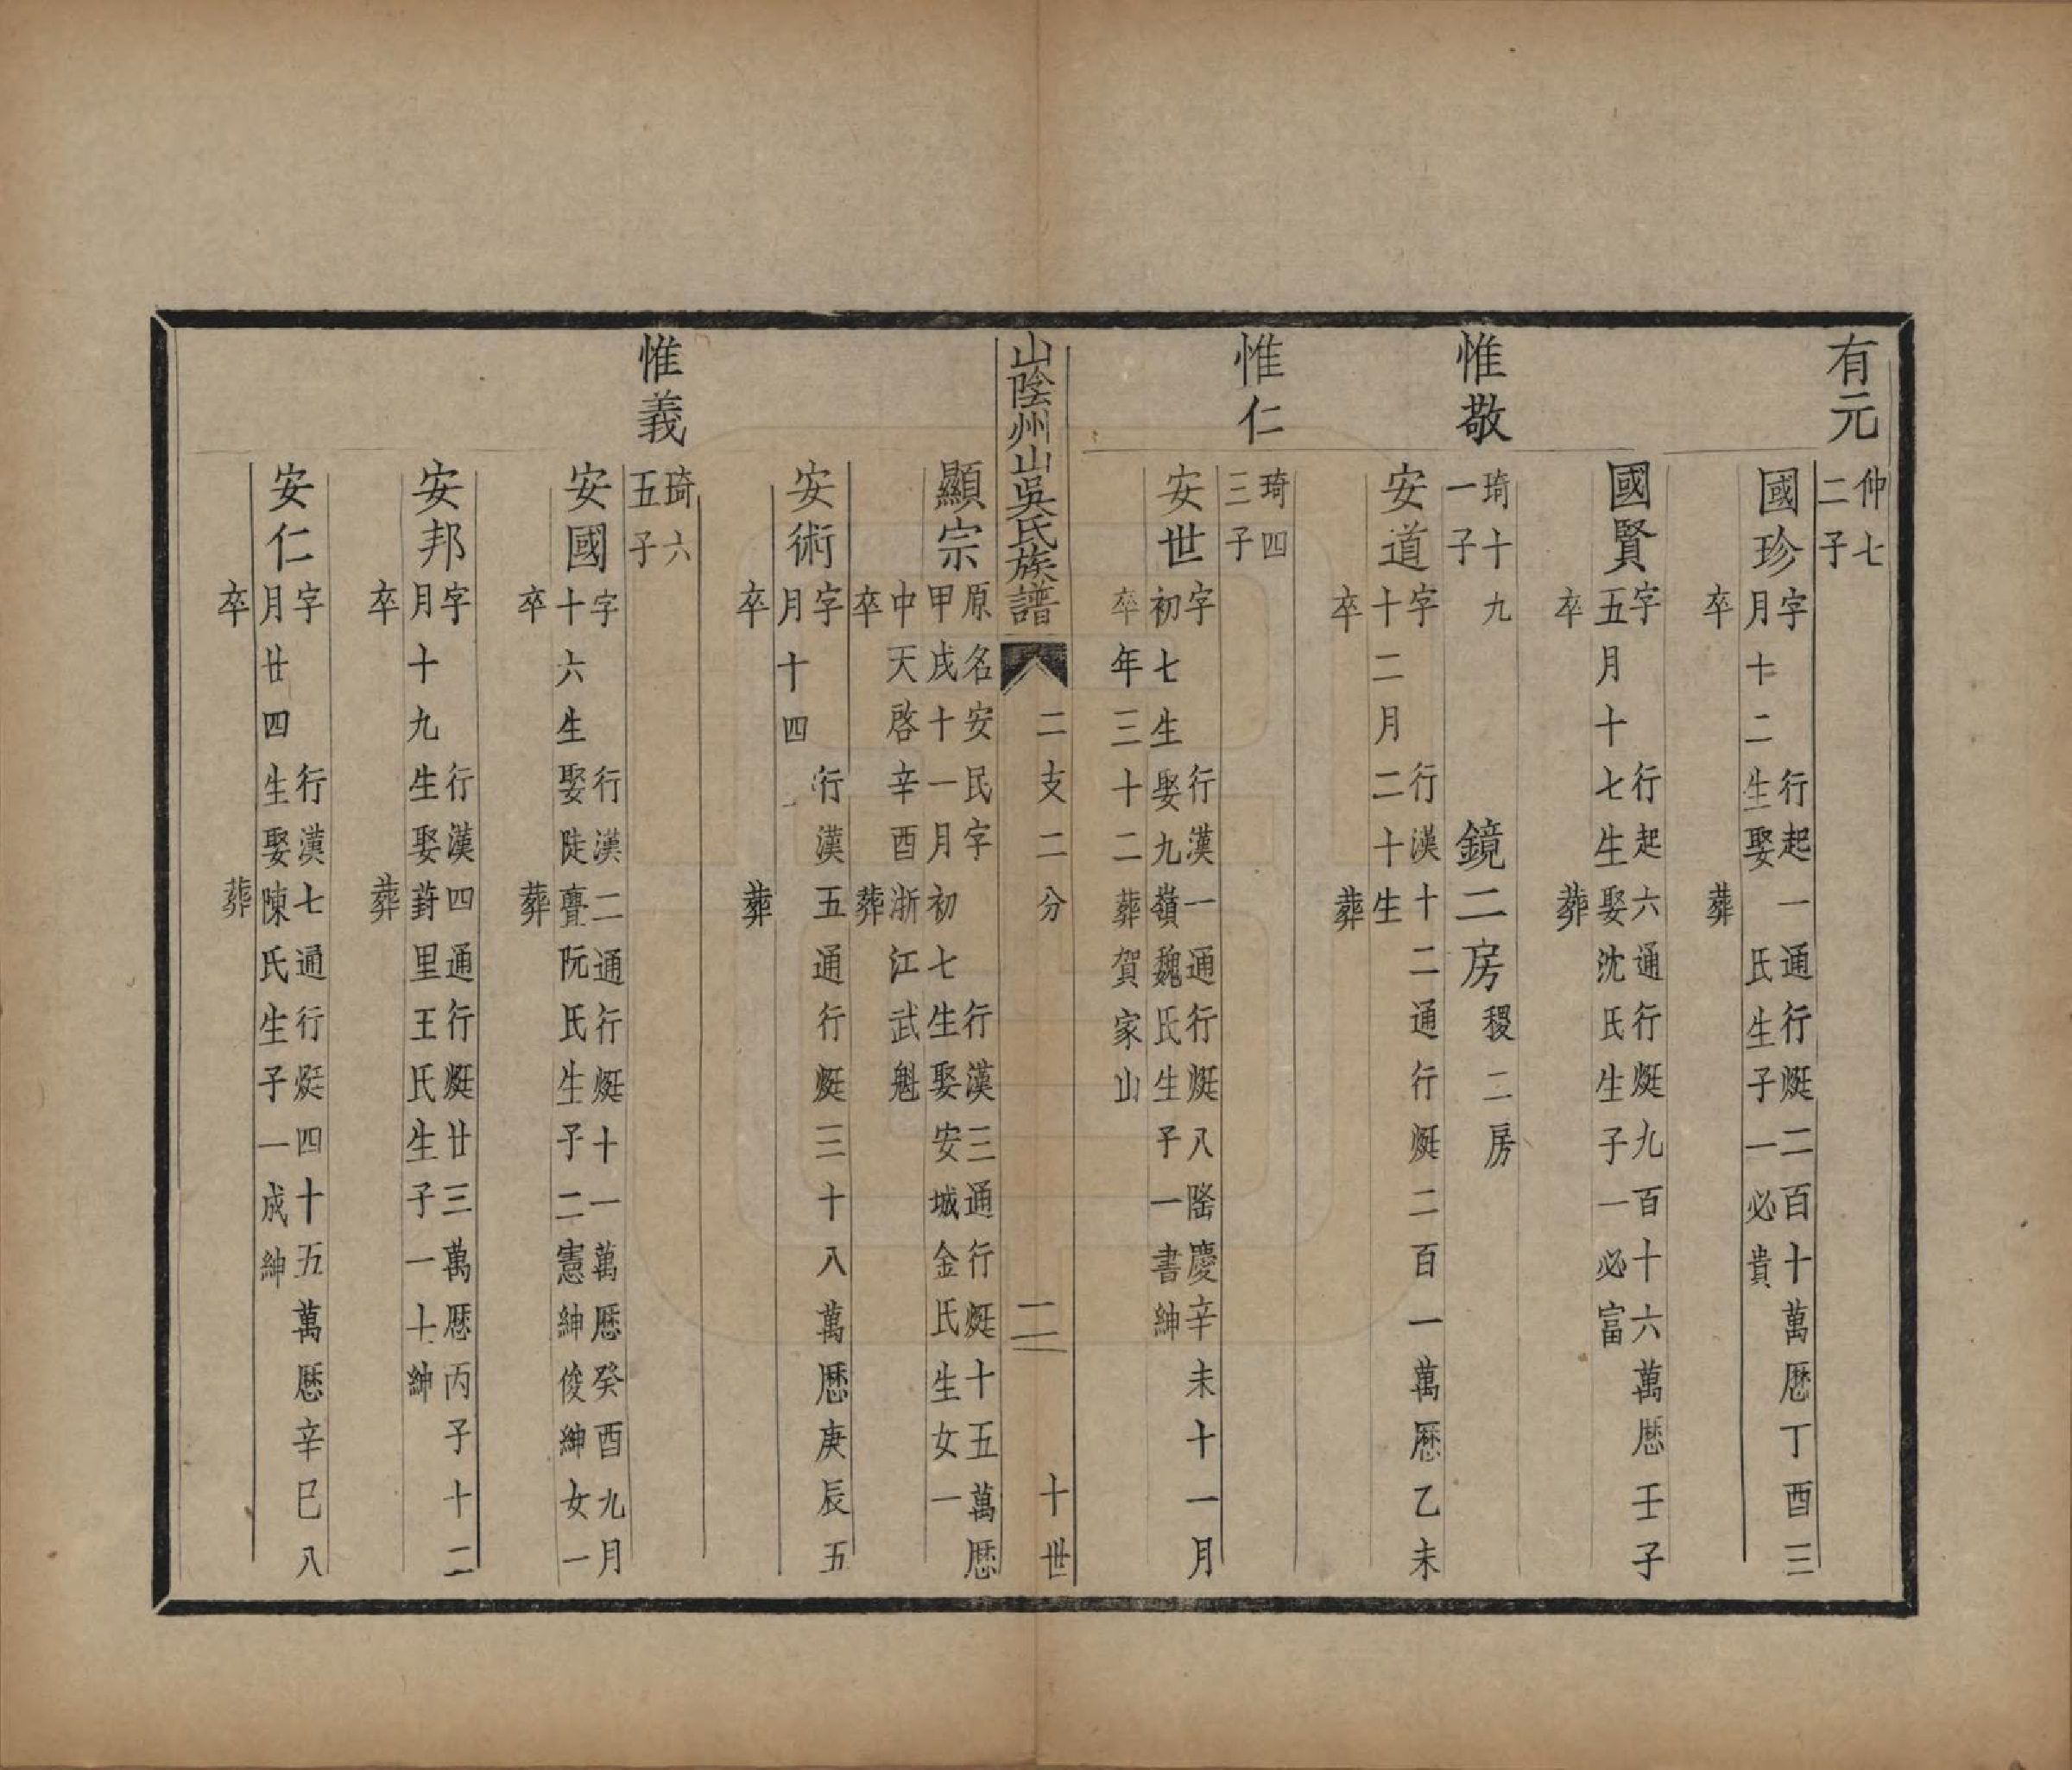 有元
仲七
二子
國珍
字　行起一通行烶二百十萬厯丁酉三
月十二生娶　氏生子一必貴
卒　葬
國賢
字　行起六通行烶九百十六萬厯壬子
五月十七生娶沈氏生子一必富
卒　葬
惟敬
琦十九
一子
鏡二房
稷二房
安道
字　行漢十二通行烶二百一萬厯乙未
十二月二十生
卒　葬
惟仁
琦四
三子
安世
字　行漢一通行烶八隆慶辛未十一月
初七生娶九嶺魏氏生子一書紳
卒年三十二葬賀家山
山陰州山吳氏族譜
二支二分
二
十世
顯宗
原名安民字　行漢三通行烶十五萬厯
甲戌十一月初七生娶安城金氏生女一
中天啓辛酉浙江武魁
卒　葬
安術
字　行漢五通行烶三十八萬厯庚辰五
月十四
卒　葬
惟義
琦六
五子
安國
字　行漢二通行烶十一萬厯癸酉九月
十六生娶陡亹阮氏生子二憲紳俊紳女一
卒　葬
安邦
字　行漢四通行烶廿三萬厯丙子十二
月十九生娶葑里王氏生子一士紳
卒　葬
安仁
字　行漢七通行烶四十五萬厯辛巳八
月廿四生娶陳氏生子一成紳
卒　葬